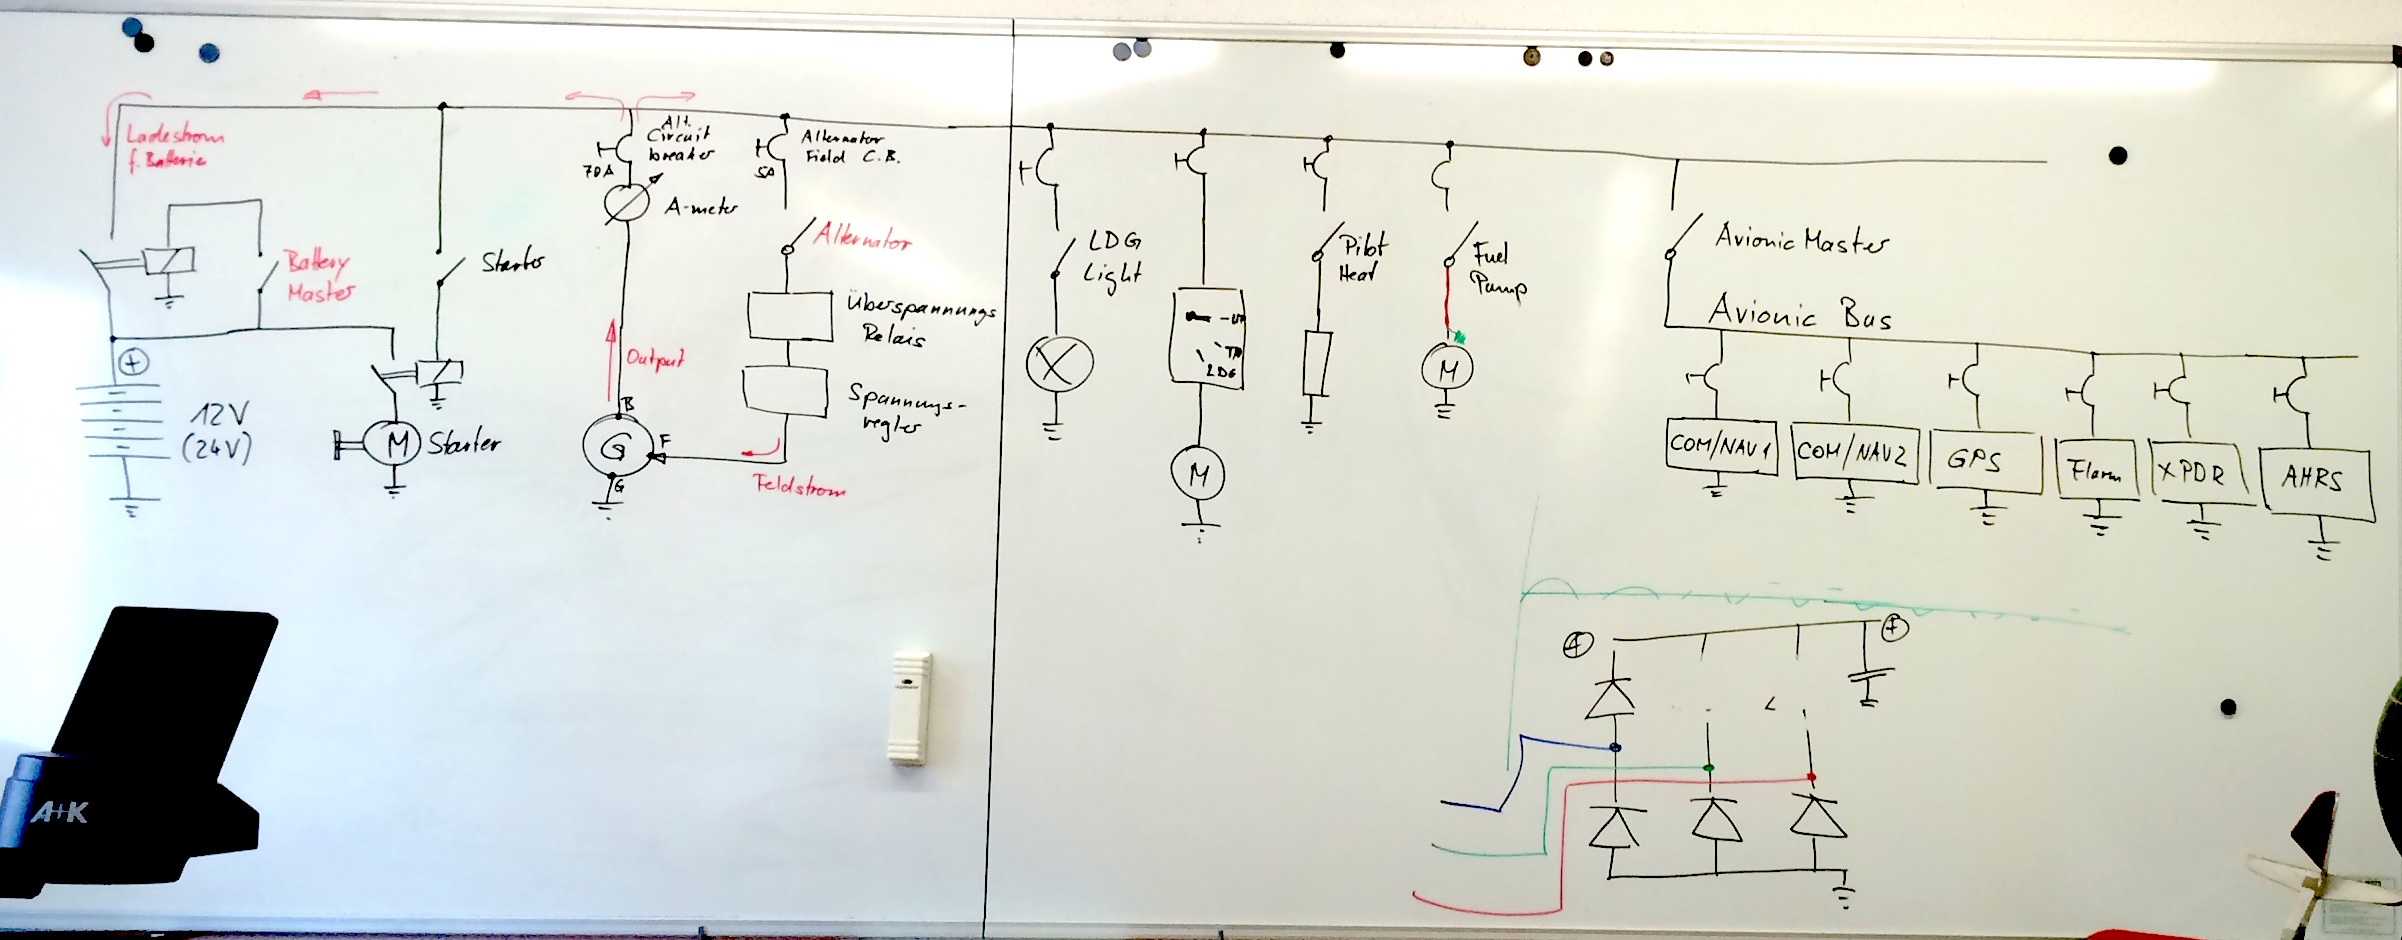 Ladestrom
f. Batterie
Battery
Master
+
12V
(24V)
Starter
M
Starter
Alt.
Circuit
breaker
70A
A-meter
Output
B
G
F
G
Alternator
Field C.B.
5A
Alternator
Überspannungs
Relais
Spannungs-
regler
Feldstrom
LDG
Light
-UP
TO
LDG
M
Pitot
Heat
Fuel
Pump
M
Avionic Master
Avionic Bus
COM/NAV1
COM/NAV2
GPS
Flarm
XPDR
AHRS
+
+
A+K